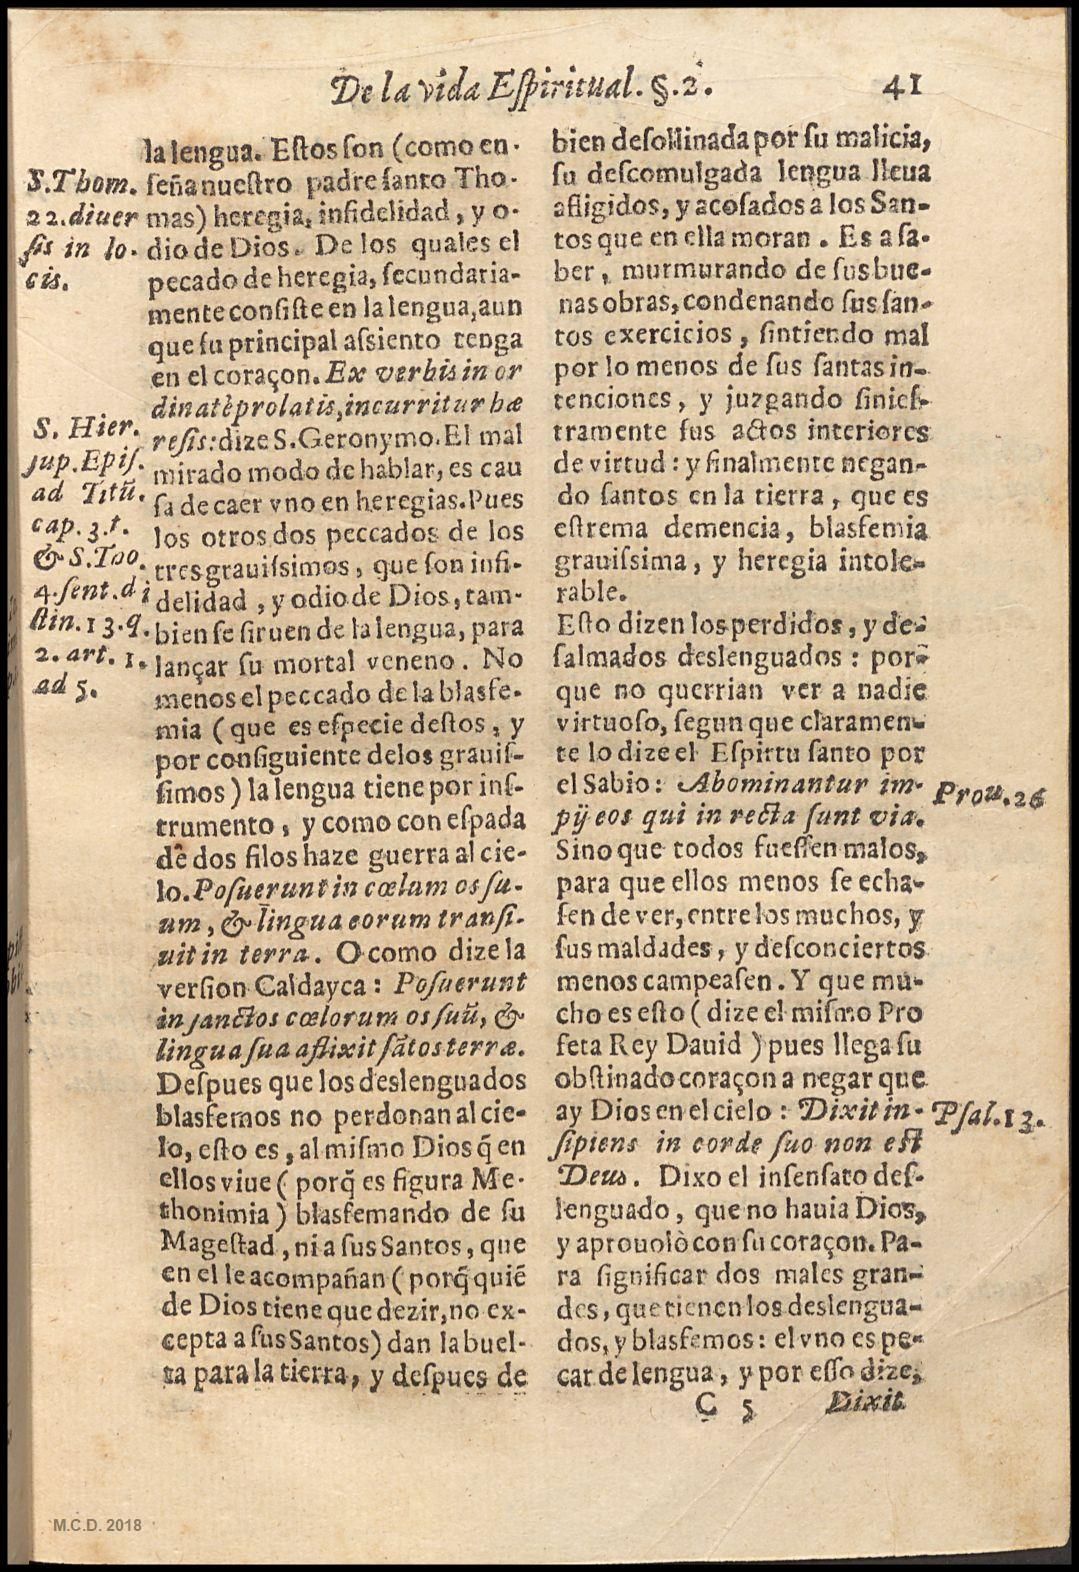 De la vida Eſpiritual. §.2.
41
la lengua. Eſtos ſon (como en-
ſeña nueſtro padre ſanto Tho-
mas) heregia, infidelidad, y o-
dio de Dios. De los quales el
pecado de heregia, ſecundaria-
mente conſiſte en la lengua, aun
que ſu principal aſsiento tenga
en el coraçon. Ex verbis in or
dinatè prolatis, incurritur hæ
reſis: dize S. Geronymo. El mal
mirado modo de hablar, es cau
ſa de caer vno en heregias. Pues
los otros dos peccados de los
tres grauiſsimos, que ſon infi-
delidad, y odio de Dios, tam-
bien ſe ſiruen de la lengua, para
lançar ſu mortal veneno. No
menos el peccado de la blasfe-
mia (que es eſpecie deſtos, y
por conſiguiente de los grauiſ-
ſimos) la lengua tiene por inſ-
trumento, y como con eſpada
de dos filos haze guerra al cie-
lo. Poſuerunt in cœlum os ſu-
um, & lingua eorum tranſi-
uit in terra. O como dize la
verſion Caldayca: Poſuerunt
in ſanctos cœlorum os ſuũ, &
lingua ſua aflixit sãtos terræ.
Deſpues que los deslenguados
blasfemos no perdonan al cie-
lo, eſto es, al miſmo Dios q̃ en
ellos viue (porq̃ es figura Me-
thonimia) blasfemando de ſu
Mageſtad, ni a ſus Santos, que
en el le acompañan (porq̃ quiẽ
de Dios tiene que dezir, no ex-
cepta a ſus Santos) dan la buel-
ta para la tierra, y deſpues de
S. Thom.
22. diuer
ſis in lo-
cis.
S. Hier.
ſup. Epiſ.
ad Titũ.
cap. 3. t.
& S. Tho.
4. ſent. di
ſtin. 13. q.
2. art. 1.
ad 5.
bien deſollinada por ſu malicia,
ſu deſcomulgada lengua lleua
afligidos, y acoſados a los San-
tos que en ella moran. Es a ſa-
ber, murmurando de ſus bue-
nas obras, condenando ſus ſan-
tos exercicios, ſintiendo mal
por lo menos de ſus ſantas in-
tenciones, y juzgando ſinieſ-
tramente ſus actos interiores
de virtud: y finalmente negan-
do ſantos en la tierra, que es
eſtrema demencia, blasfemia
grauiſsima, y heregia intole-
rable.
Eſto dizen los perdidos, y de-
ſalmados deslenguados: por-
que no querrian ver a nadie
virtuoſo, ſegun que claramen-
te lo dize el Eſpirtu ſanto por
el Sabio: Abominantur im-
pij eos qui in recta ſunt via.
Sino que todos fueſſen malos,
para que ellos menos ſe echa-
ſen de ver, entre los muchos, y
ſus maldades, y deſconciertos
menos campeaſen. Y que mu-
cho es eſto (dize el miſmo Pro
feta Rey Dauid) pues llega ſu
obſtinado coraçon a negar que
ay Dios en el cielo: Dixit in-
ſipiens in corde ſuo non eſt
Deus. Dixo el inſenſato deſ-
lenguado, que no hauia Dios,
y aprouolò con ſu coraçon. Pa-
ra ſignificar dos males gran-
des, que tienen los deslengua-
dos, y blasfemos: el vno es pe-
car de lengua, y por eſſo dize,
Prou. 26
Pſal. 13.
C 5
Dixit
M.C.D. 2018